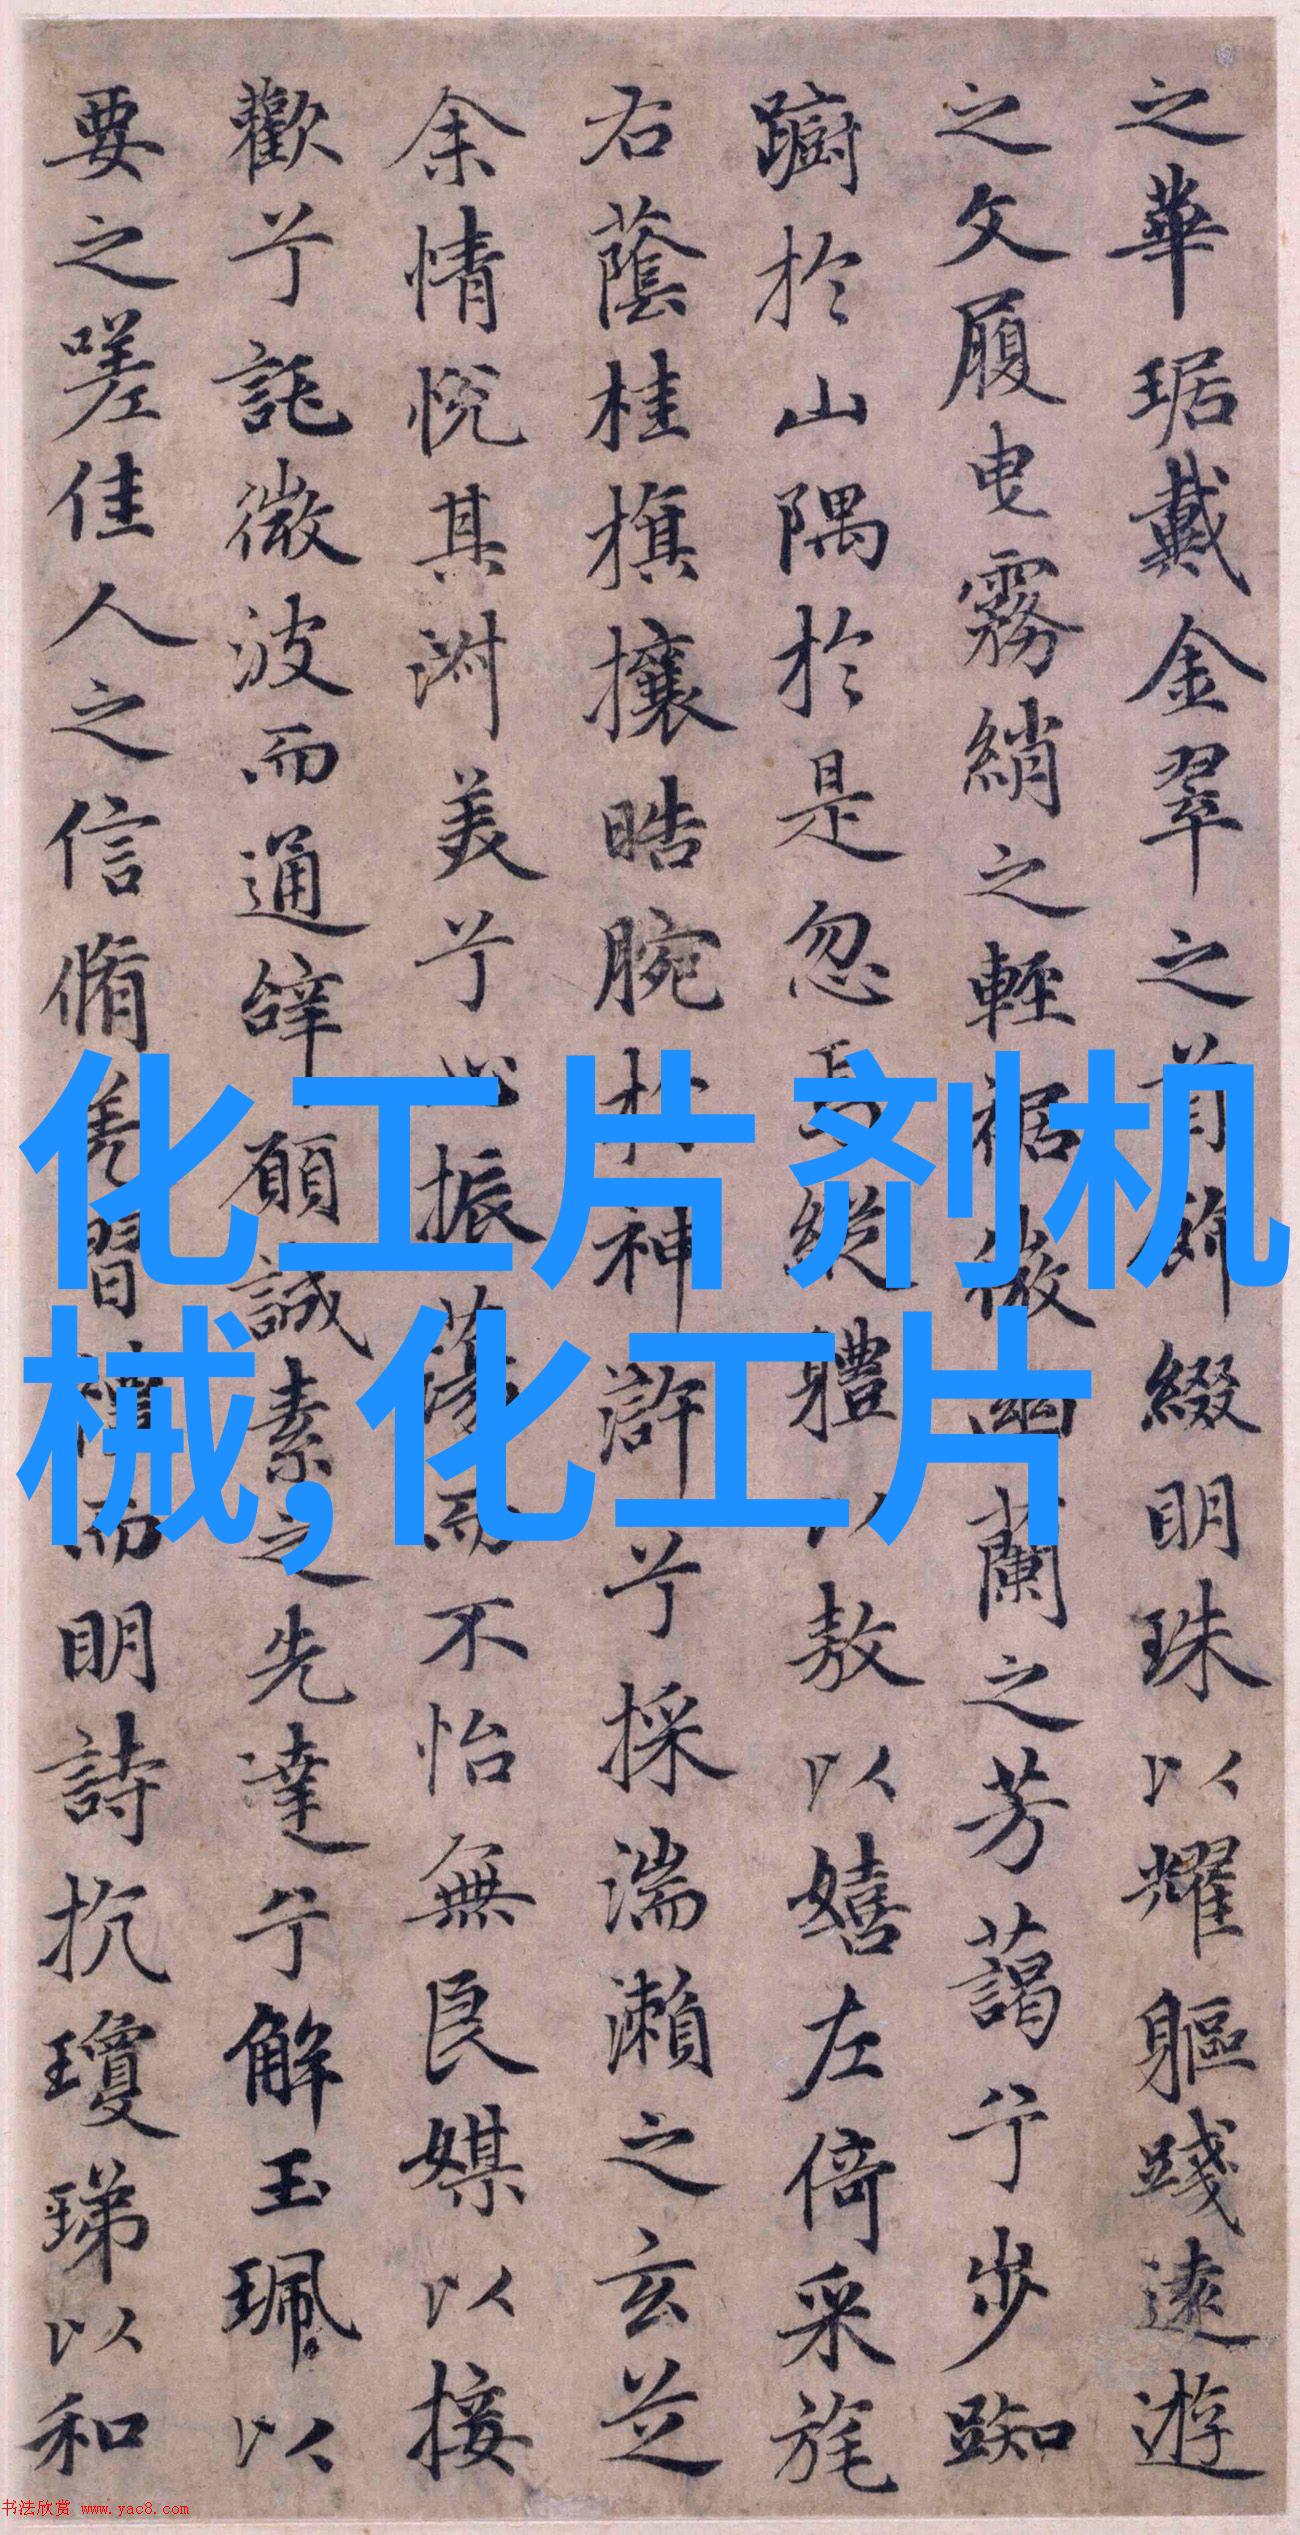 之華琚戴金翠之首飾綴眀珠以耀軀踐遠遊
之文履曳霧綃之輕裾微幽蘭之芳藹兮步踟
躕於山隅於是忽焉縱體以敖以嬉左倚采旄
右蔭桂旗攘晧腕於神滸兮採湍瀨之玄芝
余情悅其淑美兮心振蕩而不怡無良媒以接
歡兮託微波而通辭願誠素之先達兮解玉珮以
要之嗟佳人之信脩羌習禮而眀詩抗瓊珶以和
化工片剂机
械,化工片
书法欣赏 www.yac8.com